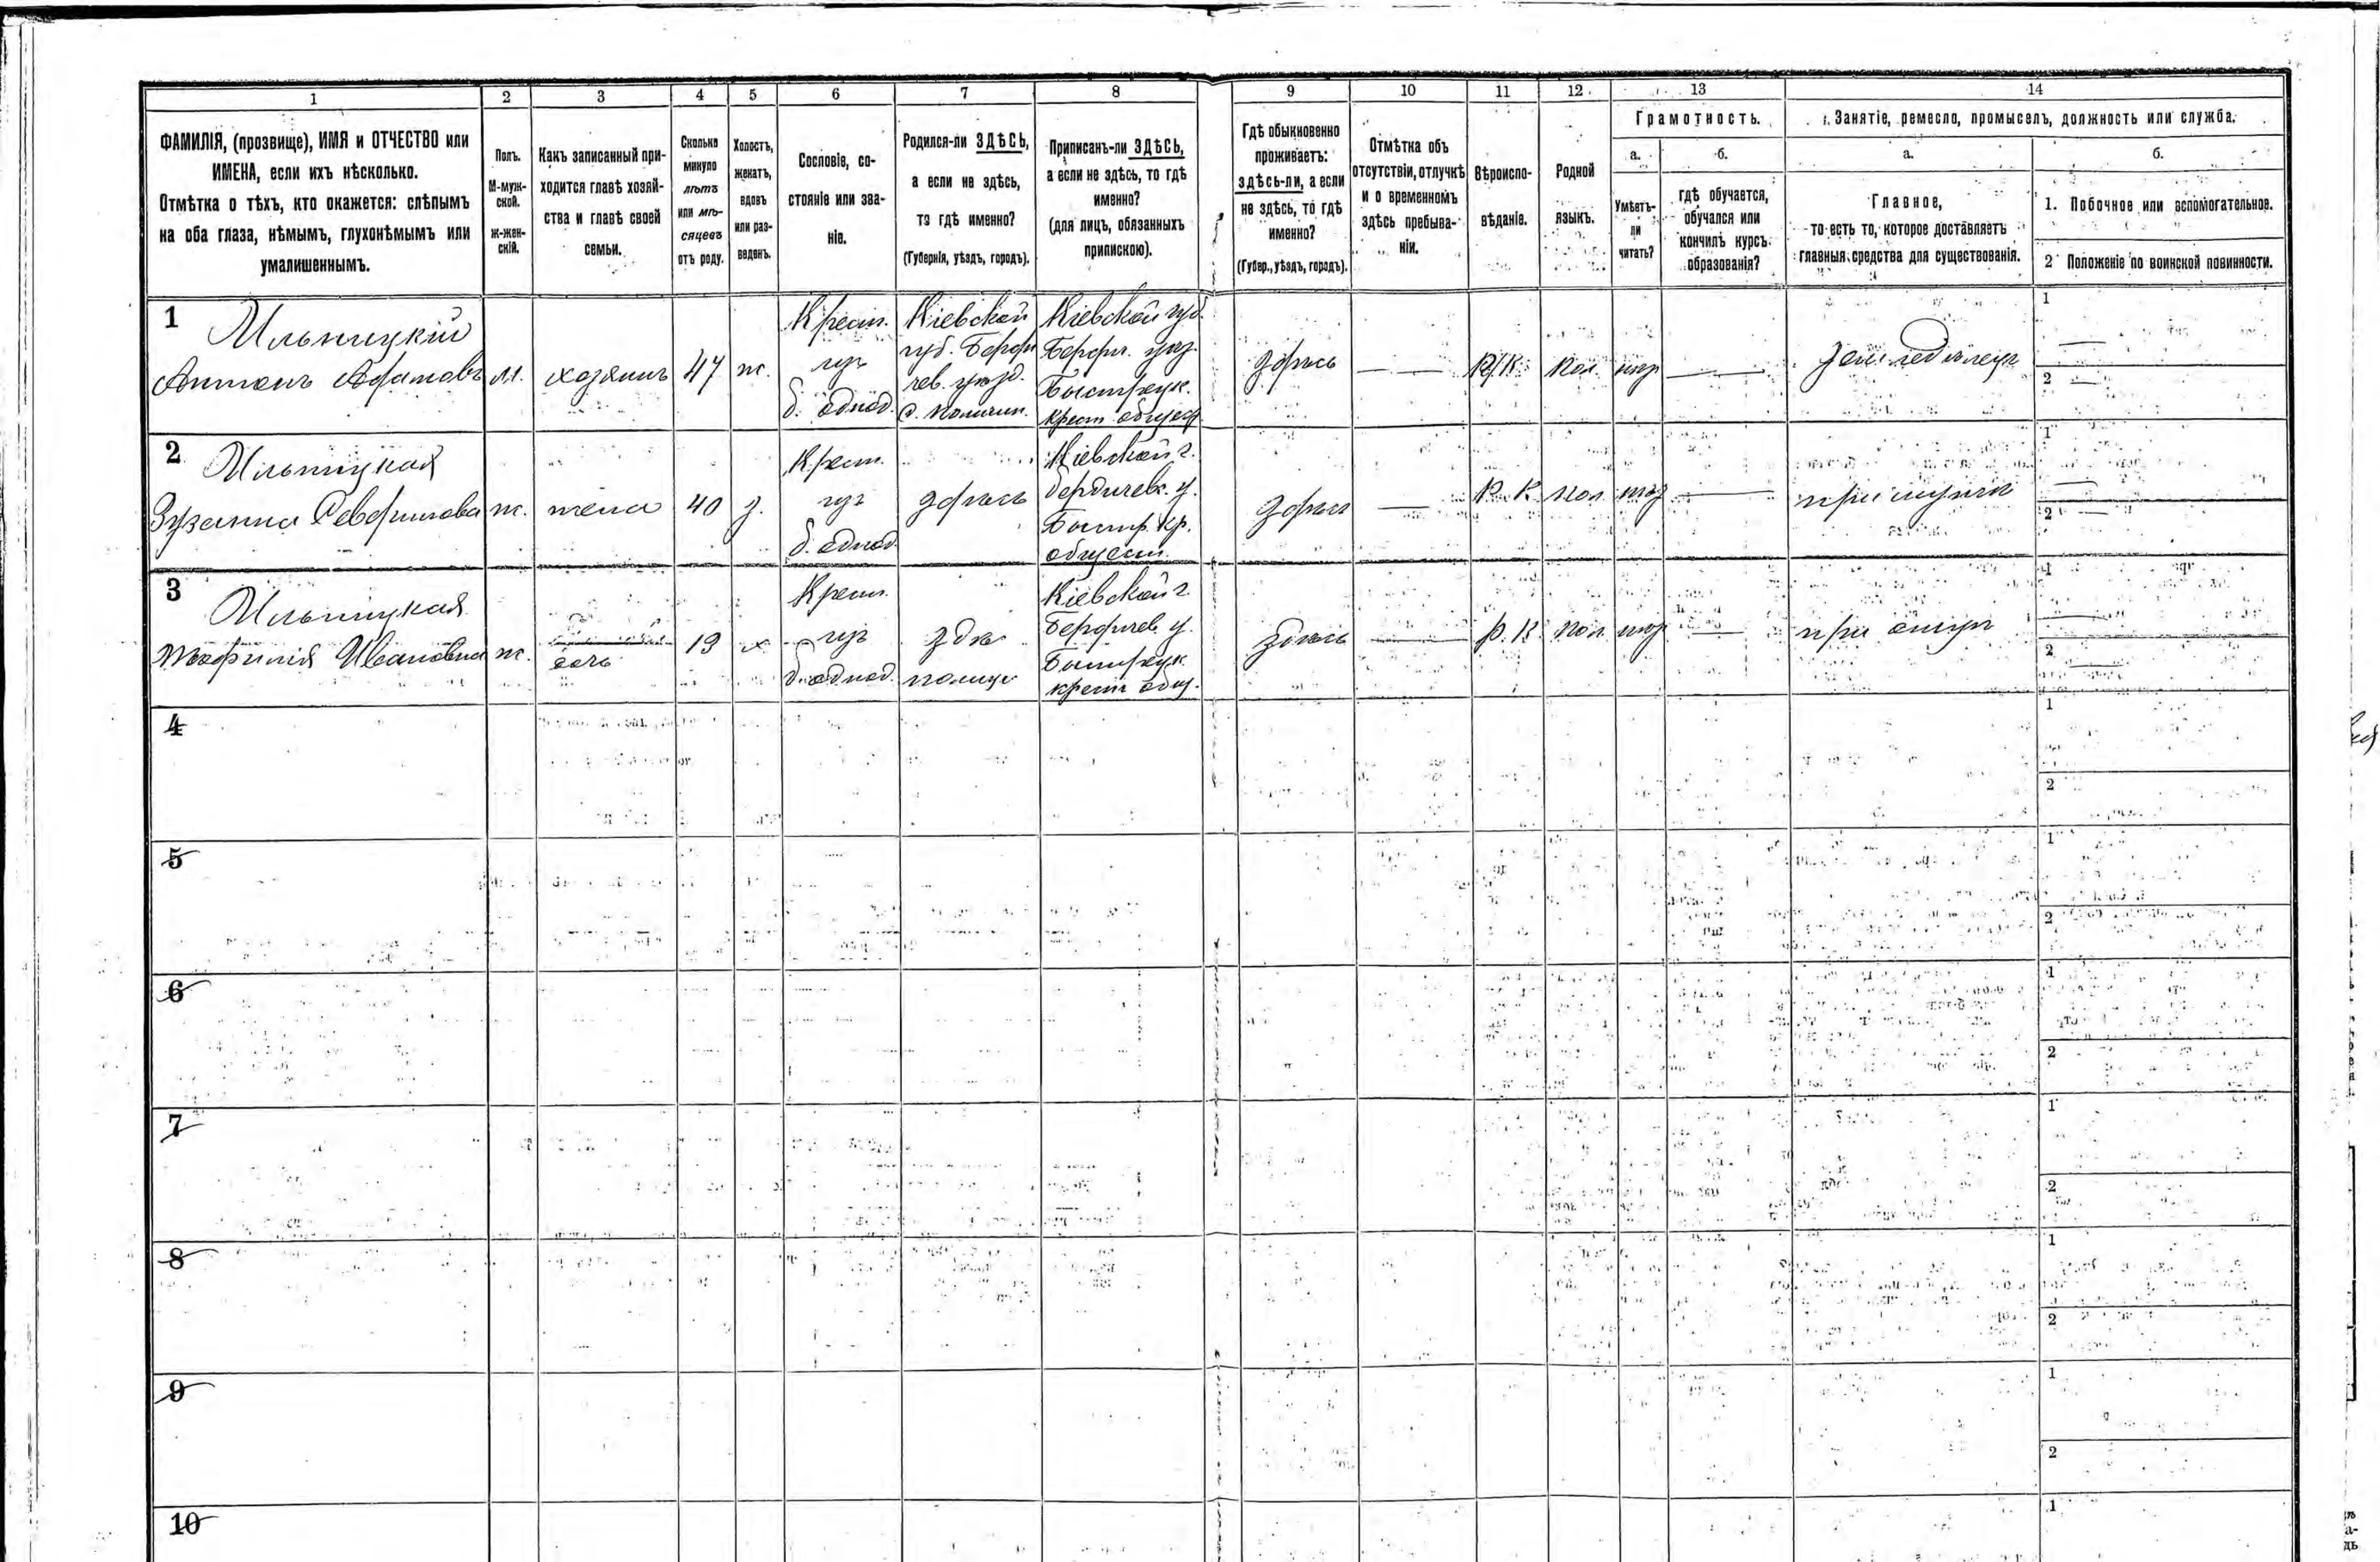 1 2 3 4 5 6 7 8 9 10 11 12 13 14
ФАМИЛІЯ, (прозвище), ИМЯ и ОТЧЕСТВО или
ИМЕНА, если ихъ нѣсколько.
Отмѣтка о тѣхъ, кто окажется: слѣпымъ
на оба глаза, нѣмымъ, глухонѣмымъ или
умалишеннымъ.
Полъ.
М-муж-
ской.
Ж-жен-
скій.
Какъ записанный при-
ходится главѣ хозяй-
ства и главѣ своей
семьи.
Сколько
минуло
лѣтъ
или мѣ-
сяцевъ
отъ роду.
Холостъ,
женатъ,
вдовъ
или раз-
веденъ.
Сословіе, со-
стояніе или зва-
ніе.
Родился-ли ЗДѢСЬ,
а если не здѣсь,
то гдѣ именно?
(Губернія, уѣздъ, городъ).
Приписанъ-ли ЗДѢСЬ,
а если не здѣсь, то гдѣ
именно?
(для лицъ, обязанныхъ
припискою).
Гдѣ обыкновенно
проживаетъ:
здѣсь-ли, а если
не здѣсь, то гдѣ
именно?
(Губер., уѣздъ, городъ).
Отмѣтка объ
отсутствіи, отлучкѣ
и о временномъ
здѣсь пребыва-
ніи.
Вѣроиспо-
вѣданіе.
Родной
языкъ.
Грамотность.
а.
Умѣетъ-
ли
читать?
б.
гдѣ обучается,
обучался или
кончилъ курсъ
образованія?
Занятіе, ремесло, промыселъ, должность или служба.
а.
Главное,
то есть то, которое доставляетъ
главныя средства для существованія.
б.
1. Побочное или вспомогательное.
2 Положеніе по воинской повинности.
1
Ильницкій
Антонъ Адамовъ
м.
хозяинъ
47
ж.
Крест.
изъ
б. однод.
Кіевской
губ. Берди
чев. уѣзд.
Кіевской губ.
Бердич. уѣз.
Быстрецк.
крест. общест
здѣсь
Р. К.
пол.
земледѣлецъ
1
2
2
Ильницкая
Зузанна Севериновa
ж.
жена
40
з.
Крест.
изъ
б. однод.
здѣсь
Кіевской г.
Бердичев. у.
Быстр. кр.
общест.
здѣсь
Р. К.
пол.
при мужѣ
1
2
3
Ильницкая
Теофилія Ивановна
ж.
дочь
19
х
Крест.
изъ
б. однод.
Кіевской г.
Бердичев. у.
Быстрецк.
крест. общ.
здѣсь
Р. К.
пол.
при отцѣ
1
2
4
1
2
5
1
2
6
1
2
7
1
2
8
1
2
9
1
2
10
1